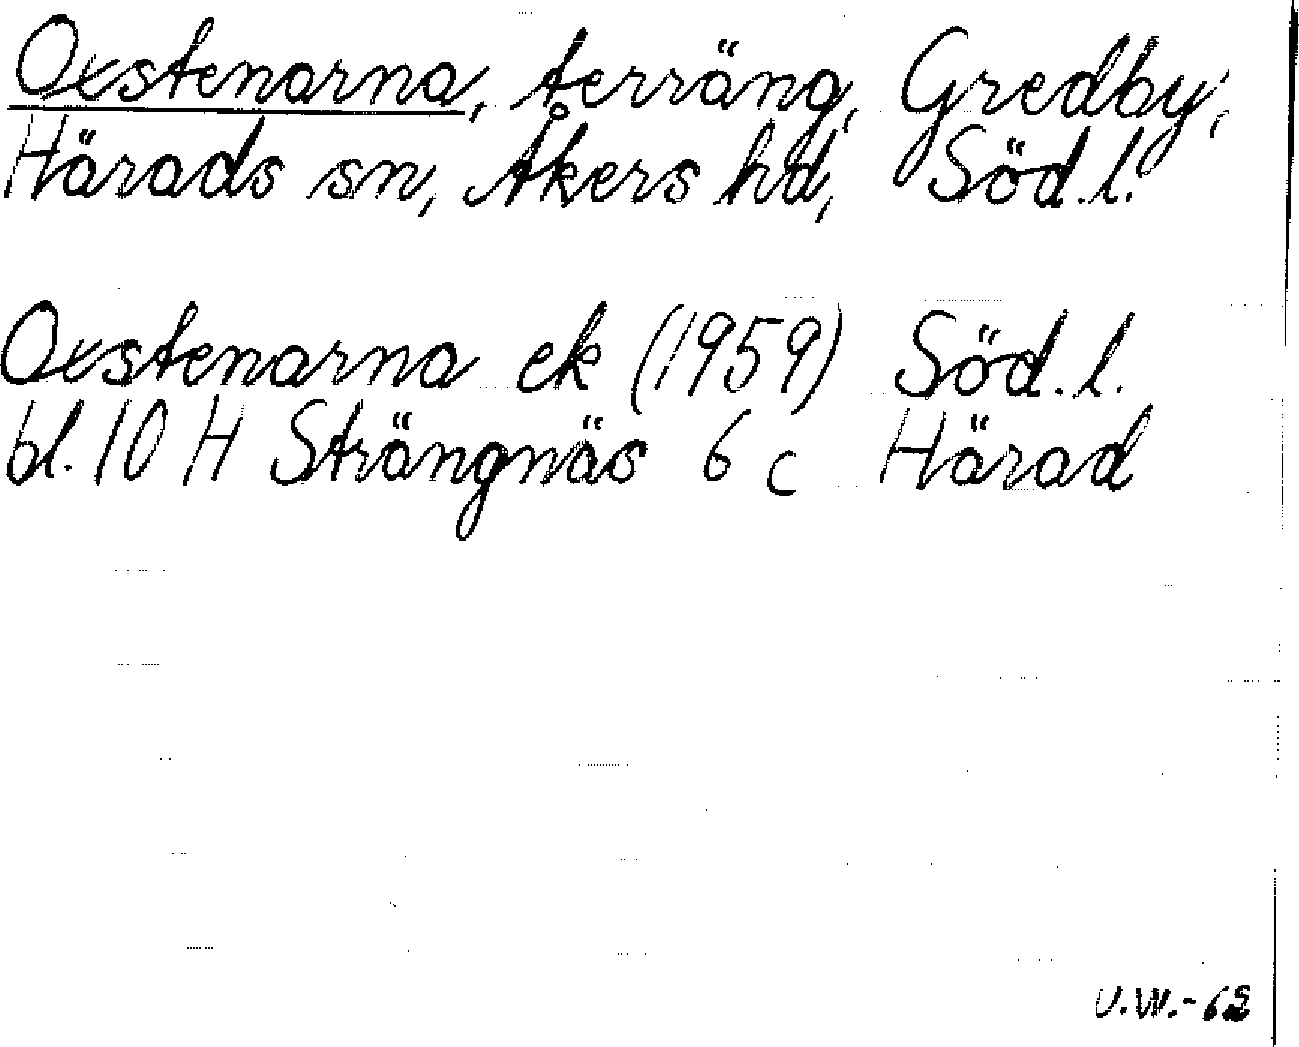 Oxstenarna, terräng, Gredby,
Härads sn, Åkers hd, Söd.l.
Oxstenarna ek (1959) Söd.l.
bl. 10 H Strängnäs 6 c Härad
U.W.-62